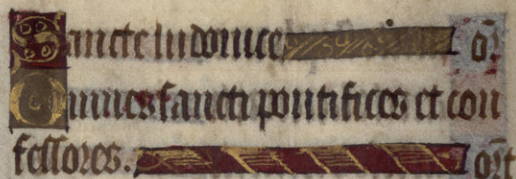 Sancte ludouice or
Omnes sancti pontifices et con
fessores. ort